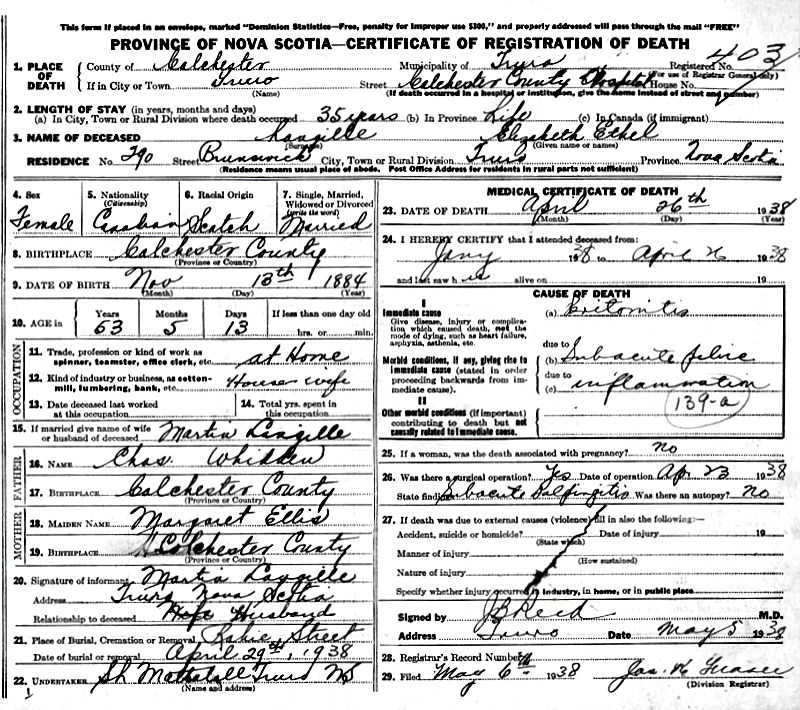 This form if placed in an envelope, marked "Dominion Statistics—Free, penalty for improper use $300," and properly addressed will pass through the mail "FREE"
PROVINCE OF NOVA SCOTIA—CERTIFICATE OF REGISTRATION OF DEATH
403
1. PLACE OF DEATH County of Colchester Municipality of Truro Registered No.
(For use of Registrar General only)
If in City or Town Truro Street Colchester County Hospital House No.
(Name) (If death occurred in a hospital or institution, give the name instead of street and number)
2. LENGTH OF STAY (in years, months and days)
(a) In City, Town or Rural Division where death occurred 35 years (b) In Province Life (c) In Canada (if immigrant)
3. NAME OF DECEASED Langille Elizabeth Ethel
(Surname) (Given name or names)
RESIDENCE No. 290 Street Brunswick City, Town or Rural Division Truro Province Nova Scotia
(Residence means usual place of abode. Post Office Address for residents in rural parts not sufficient)
4. Sex Female
5. Nationality (Citizenship) Canadian
6. Racial Origin Scotch
7. Single, Married, Widowed or Divorced (write the word) Married
8. BIRTHPLACE Colchester County
(Province or Country)
9. DATE OF BIRTH Nov 13th 1884
(Month) (Day) (Year)
10. AGE in Years Months Days If less than one day old
53 5 13 hrs. or min.
OCCUPATION
11. Trade, profession or kind of work as spinner, teamster, office clerk, etc. at Home
12. Kind of industry or business, as cotton-mill, lumbering, bank, etc. House wife
13. Date deceased last worked at this occupation
14. Total yrs. spent in this occupation
15. If married give name of wife or husband of deceased Martin Langille
FATHER
16. NAME Chas. Whidden
17. BIRTHPLACE Colchester County
(Province or Country)
MOTHER
18. MAIDEN NAME Margaret Ellis
19. BIRTHPLACE Colchester County
(Province or Country)
20. Signature of informant Martin Langille
Address Truro Nova Scotia
Relationship to deceased Husband
21. Place of Burial, Cremation or Removal Street
Date of burial or removal April 29th, 1938
22. UNDERTAKER Truro NS
(Name and address)
MEDICAL CERTIFICATE OF DEATH
23. DATE OF DEATH April 26th 1938
(Month) (Day) (Year)
24. I HEREBY CERTIFY that I attended deceased from:
Jany 1938 to April 26 1938
and last saw h alive on 19
CAUSE OF DEATH
I
Immediate cause
Give disease, injury or complication which caused death, not the mode of dying, such as heart failure, asphyxia, asthenia, etc.
(a) Peritonitis
due to
Morbid conditions, if any, giving rise to immediate cause (stated in order proceeding backwards from immediate cause).
(b) Subacute pelvic
due to
(c) inflammation
139-a
II
Other morbid conditions (important) contributing to death but not causally related to immediate cause.
25. If a woman, was the death associated with pregnancy? no
26. Was there a surgical operation? Yes Date of operation Apr 23 1938
State findings Subacute Salpingitis Was there an autopsy? No
27. If death was due to external causes (violence) fill in also the following:—
Accident, suicide or homicide? Date of injury 19
(State which)
Manner of injury
(How sustained)
Nature of injury
Specify whether injury occurred in industry, in home, or in public place
Signed by J B Reid M.D.
Address Truro Date May 5 1938
28. Registrar's Record Number
29. Filed May 6th 1938 Jas. H Fraser
(Division Registrar)